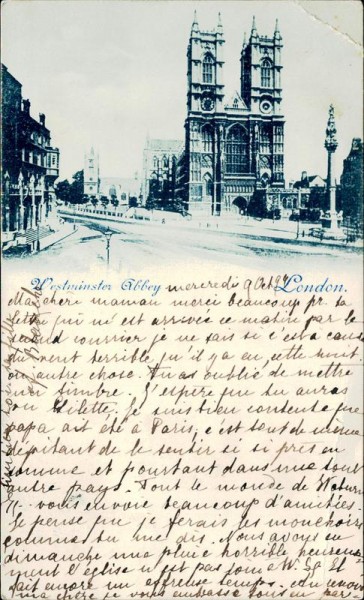 Westminster Abbey London.
mercredi 9 Oct
Ma chère maman merci beaucoup pr. ta
lettre qui m'est arrivée ce matin par le
second courrier je ne sais si c'est à cause
du vent terrible qu'il y a eu cette nuit
ou autre chose. Tu as oublié de mettre
un timbre. J'espère que tu auras
Gilette. Je suis bien contente que
papa ait été à Paris, c'est tout de même
de le sentir si si près en
somme et pourtant dans une tout
autre pays. Tout le monde de
vous envoie beaucoup d'amitiés.
Je pense que je ferais les mouchoirs
comme tu me dis. Nous avons eu
dimanche une pluie horrible heureuse
ment l'église n'est pas loin à W. St. Il
fait encore un affreux temps.
ma chère je vous embrasse tous